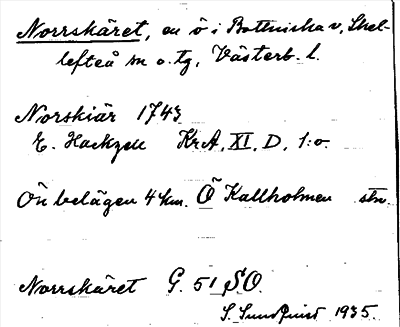 Norrskäret, en ö i Bottniska v, Skel-
lefteå sn o. tg, Västerb. l.
Norskiär 1743
E. Hackzell KrA, XI, D, 1:o.
Ön belägen 4 km. Ö Kallholmen stn.
Norrskäret G. 51 SO.
S. Sundquist 1935.